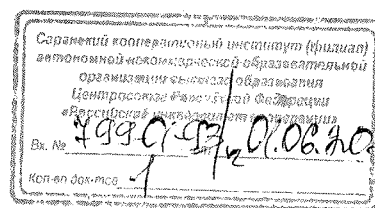 Саранский кооперативный институт (филиал)
автономной некоммерческой образовательной
организации высшего образования
Центросоюза Российской Федерации
«Российский университет кооперации»
Вх. № 01.06.20
Кол-во док-тов 1